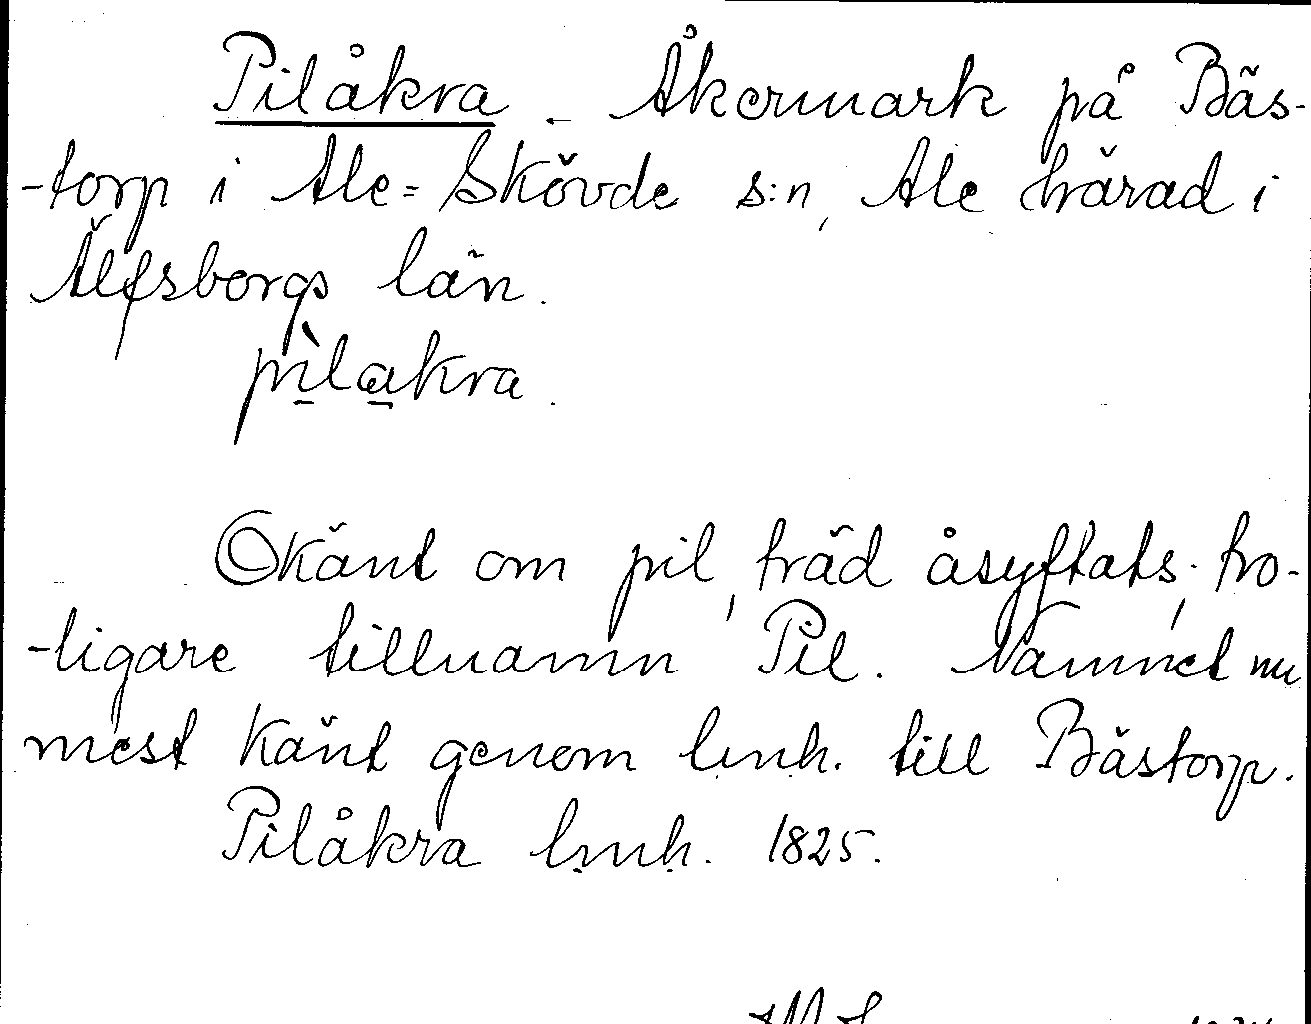 Pilåkra - Åkermark på Bäs-
-torp i Ale=Skövde s:n, Ale härad i
Älfsborgs län.
pìlakra.
Okänt om pil, träd åsyftats; tro-
-ligare tillnamn Pil. Namnet nu
mest känt genom lmh. till Bästorp.
Pilåkra lmh. 1825.